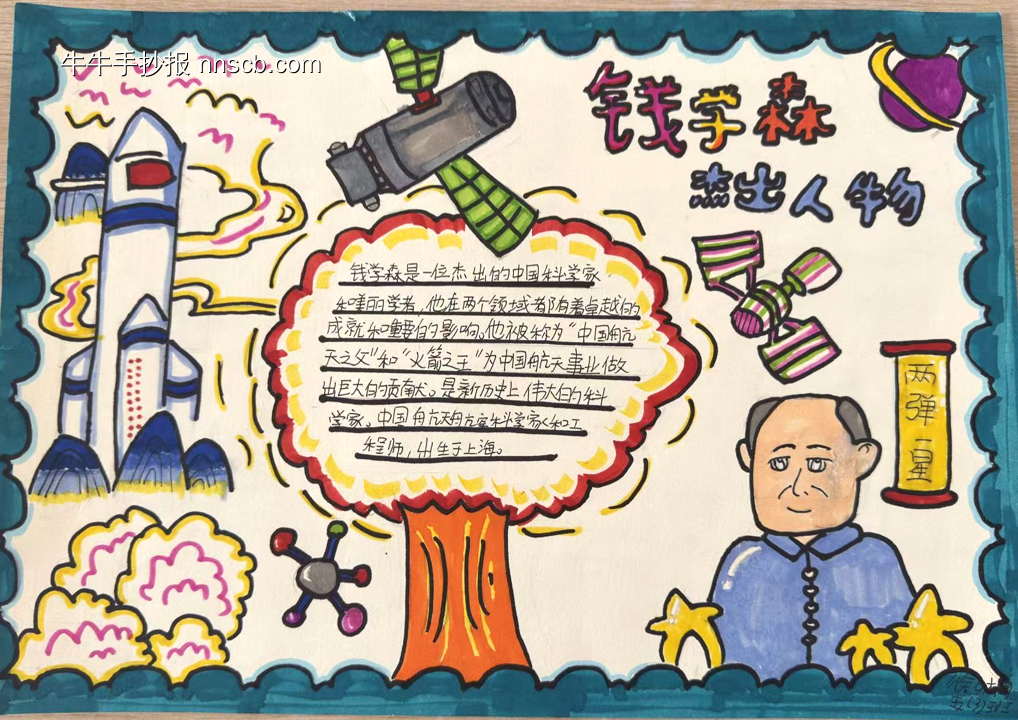 牛牛手抄报 nnscb.com
钱学森
杰出人物
钱学森是一位杰出的中国科学家
和理学者,他在两个领域都有着卓越的
成就和重要的影响。他被称为“中国航
天之父”和“火箭之王”为中国航天事业做
出巨大的贡献。是新历史上伟大的科
学家。中国航天航空科学家和工
程师,出生于上海。
两弹一星